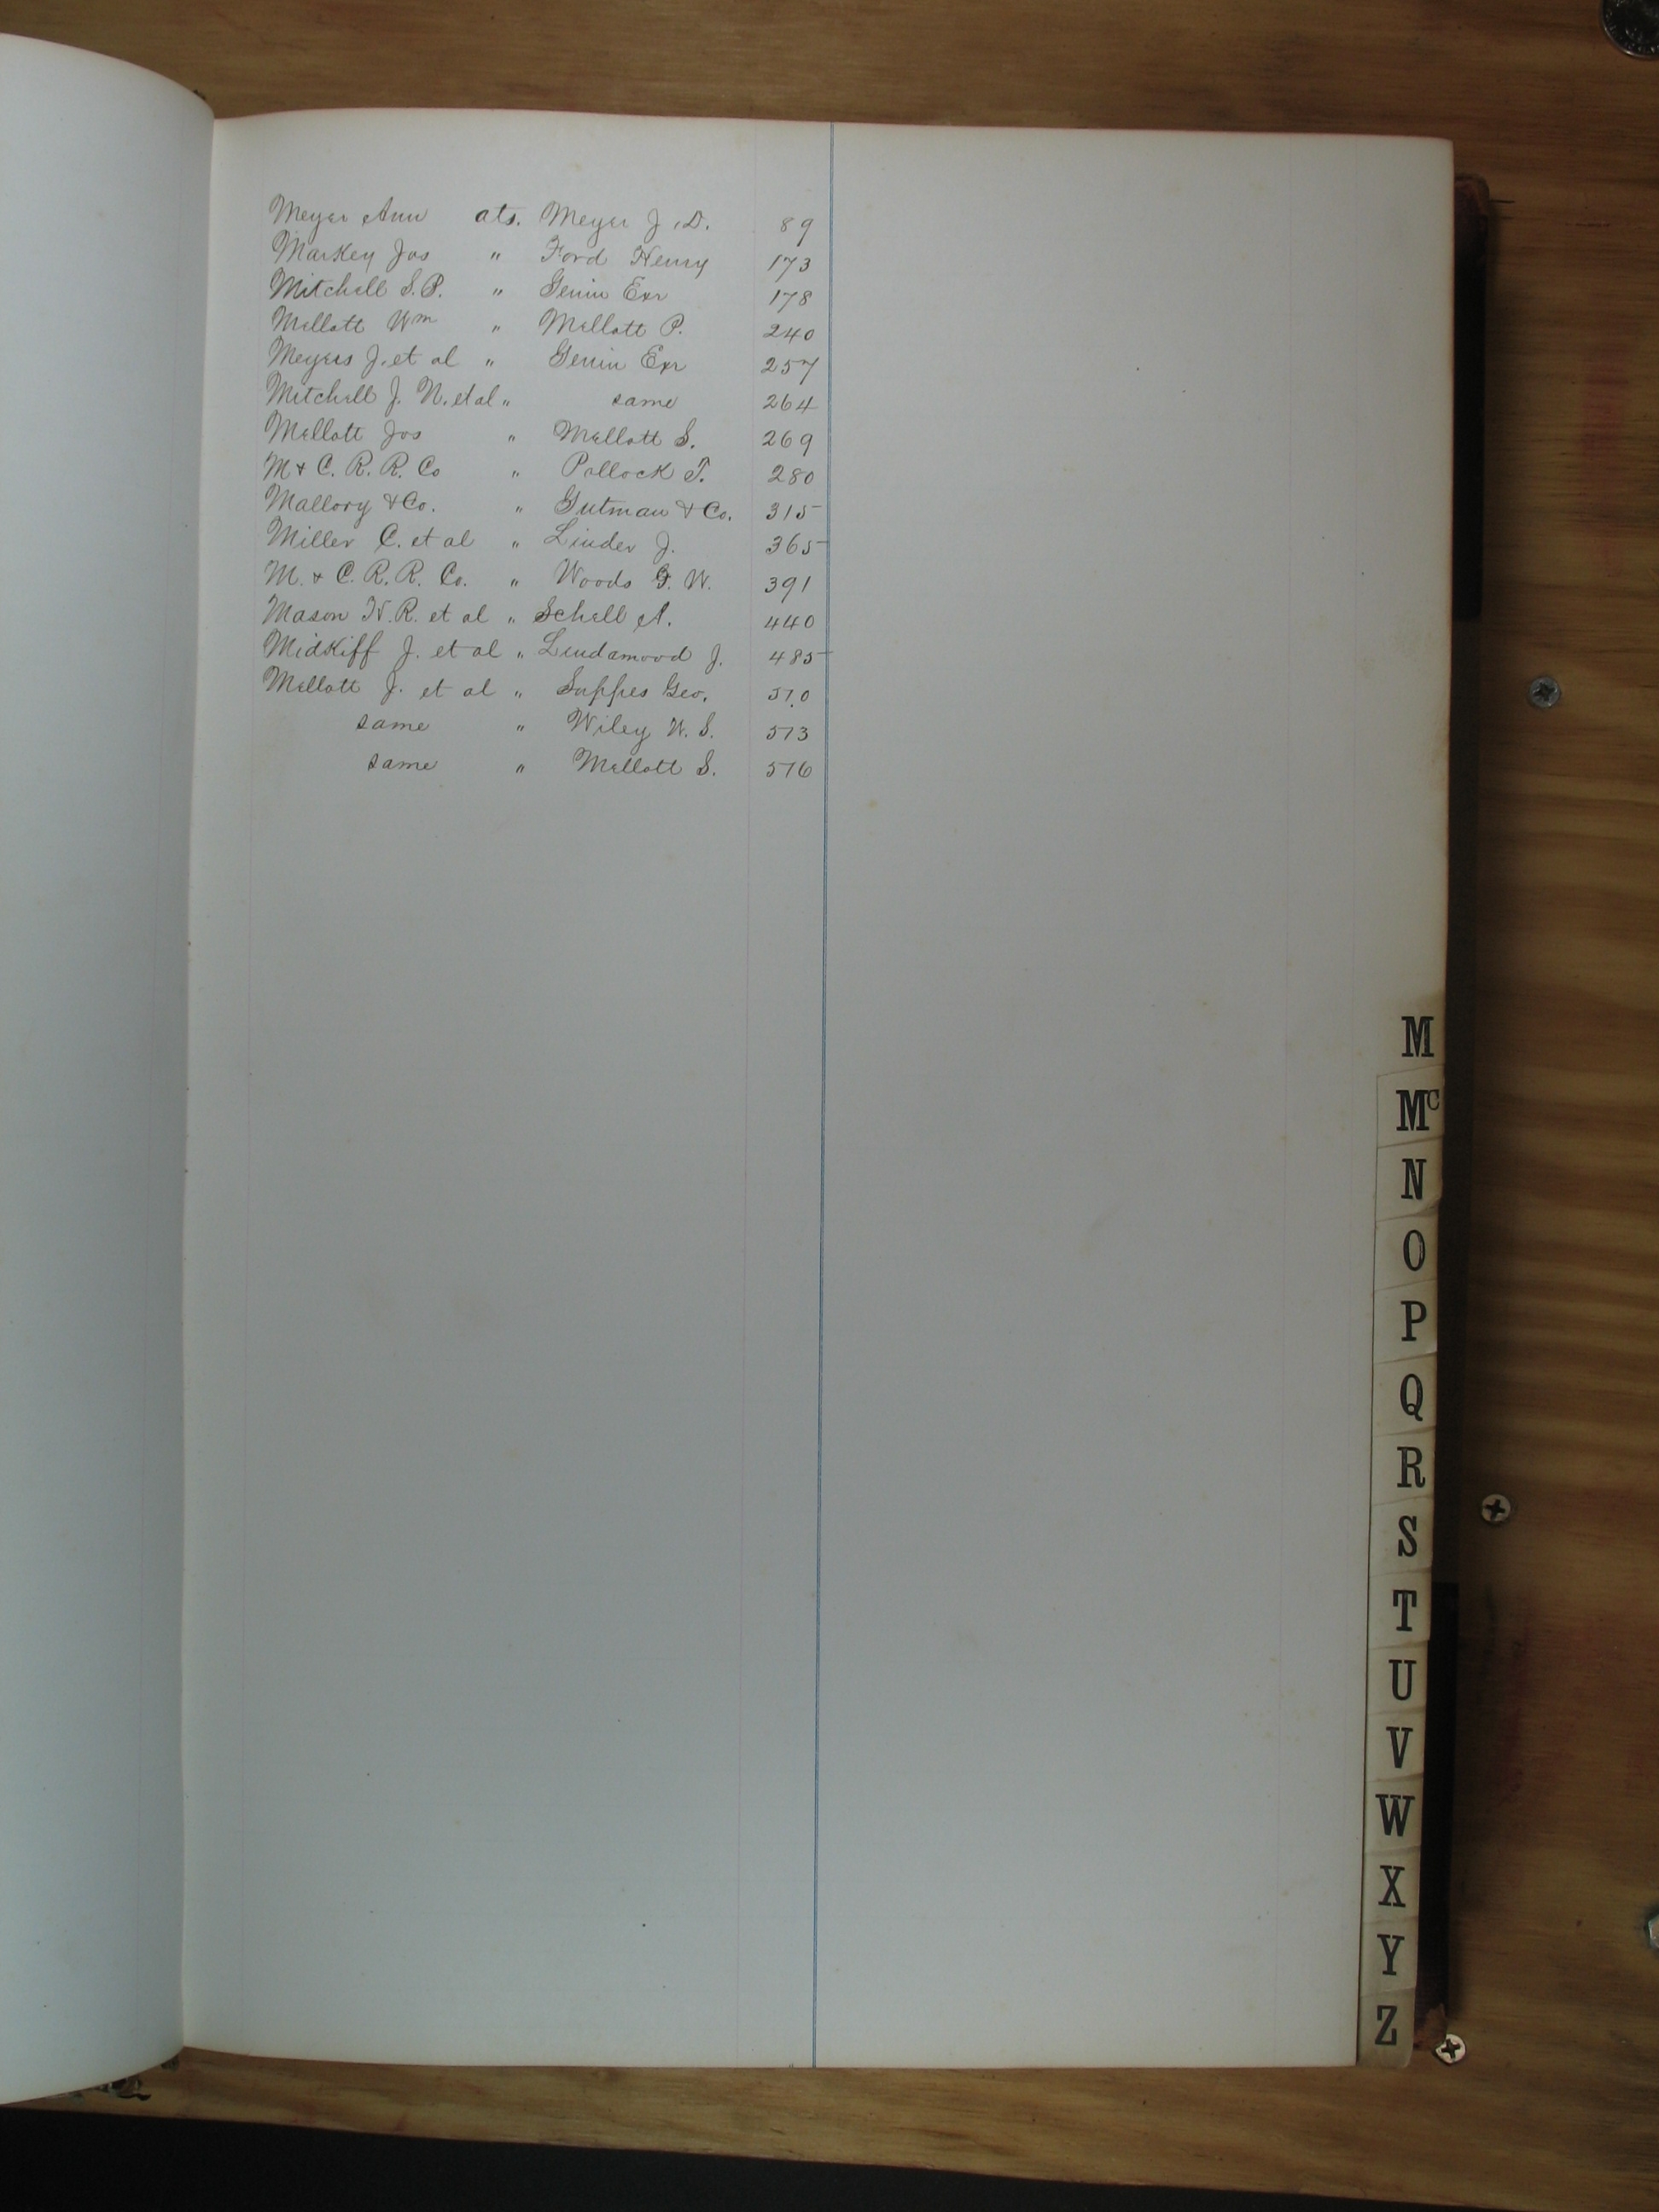 Meyer Ann ats. Meyer J. D. 89
Markey Jos " Ford Henry 173
Mitchell S. P. " Genin Exr 178
Mellott Wm " Mellott P. 240
Meyers J. et al " Genin Exr 257
Mitchell J. N. et al " same 264
Mellott Jos " Mellott S. 269
M & C. R. R. Co " Pollock T. 280
Mallory & Co. " Gutman & Co. 315
Miller C. et al " Linder J. 365
M. & C. R. R. Co. " Woods G. W. 391
Mason N. R. et al " Schell A. 440
Midkiff J. et al " Lindamood J. 485
Mellott J. et al " Suppes Geo. 510
same " Wiley W. S. 513
same " Mellott S. 516
M
Mc
N
O
P
Q
R
S
T
U
V
W
X
Y
Z